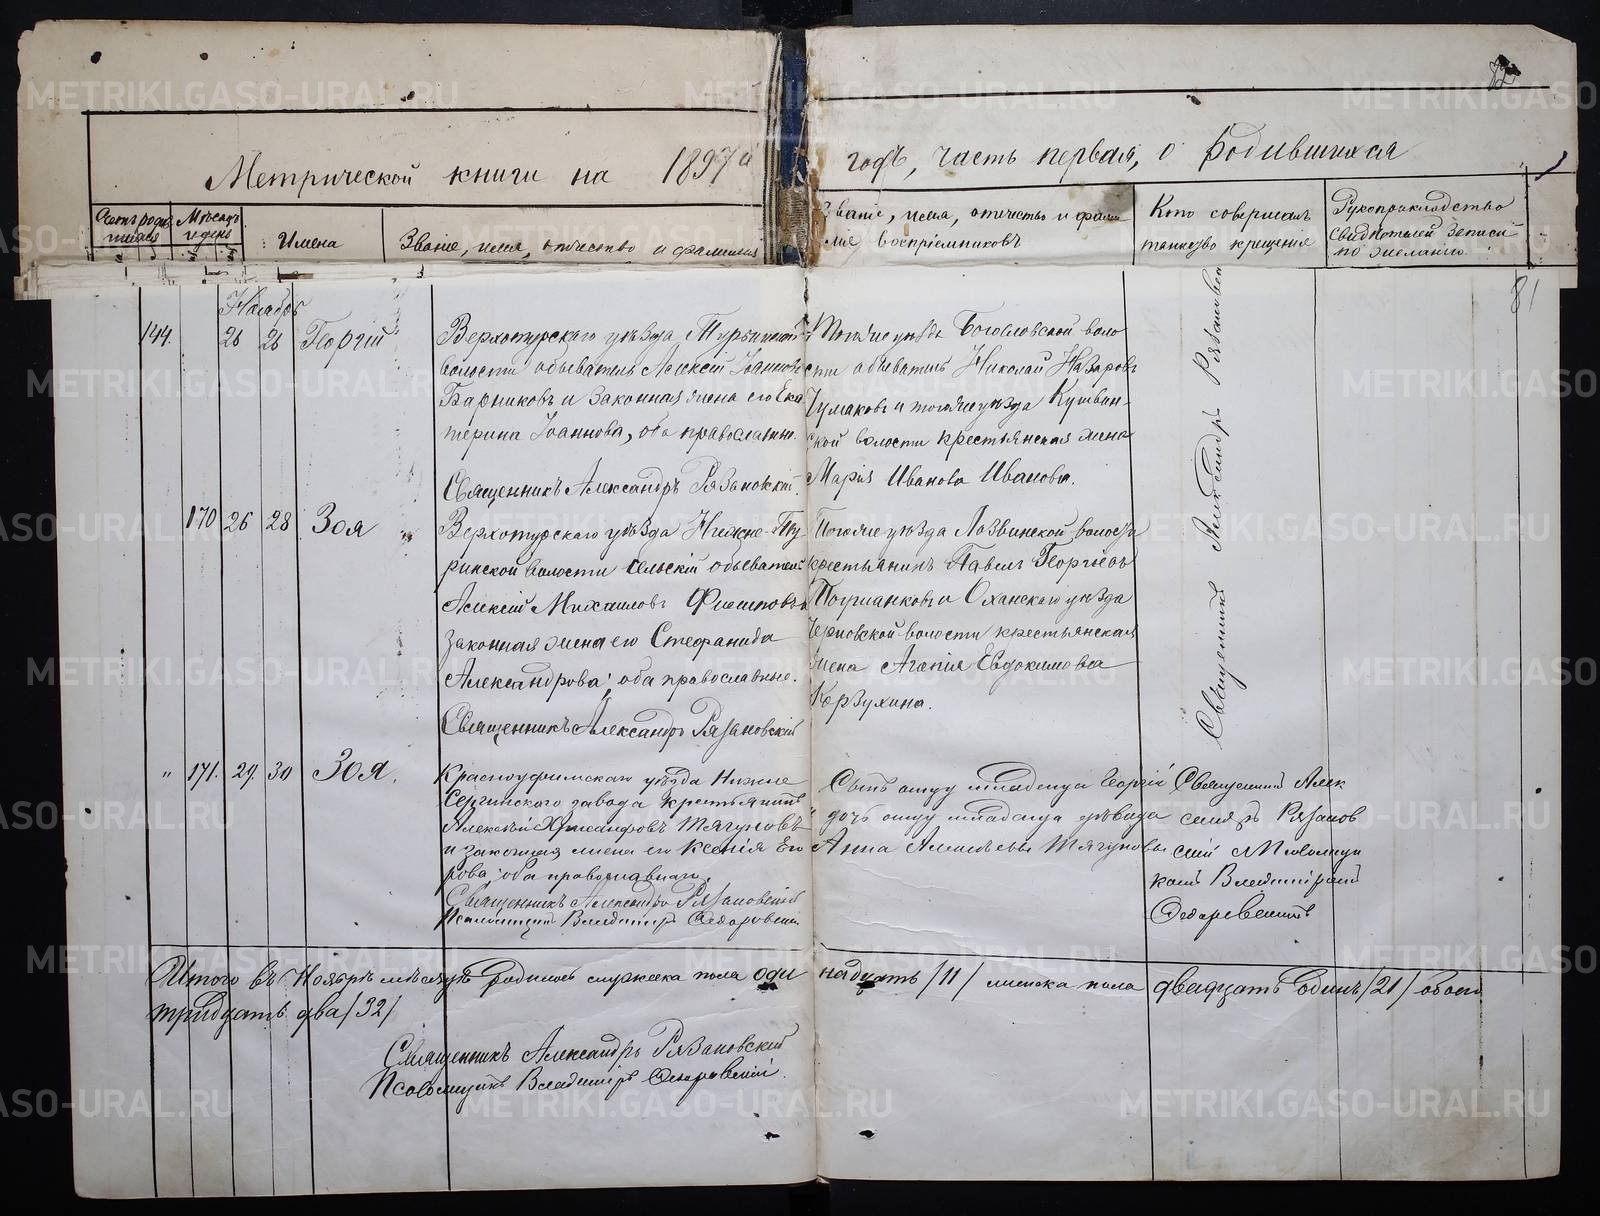 82
Метрической книги на 1897й годъ, часть первая, о родившихся
Счетъ родившихся
Мѣсяцъ и день
Имена
Званіе, имя, отчество и фамилія
Званіе, имя, отчество и фамилія воспріемниковъ
Кто совершалъ таинство крещенія
Рукоприкладство свидѣтелей записи по желанію
81
Ноябрь
144. 26 26 Георгій
Верхотурскаго уѣзда Турьинской
волости обыватель Алексій Іоанновъ
Барниковъ и законная жена его Ека
терина Іоаннова, оба православные.
Священникъ Александръ Рязановскій.
Того же уѣзда Богословской воло
сти обыватель Николай Назаровъ
Чумаковъ и того же уѣзда Кушвин-
ской волости крестьянская жена
Марія Иванова Иванова.
170 26 28 Зоя
Верхотурскаго уѣзда Нижне-Ту
ринской волости сельскій обыватель
Алексій Михаиловъ Филиповъ и
законная жена его Стефанида
Александрова; оба православные.
Священникъ Александръ Рязановскій
Того же уѣзда Лозвинской волости
крестьянинъ Павелъ Георгіевъ
и Оханскаго уѣзда
Черновской волости крестьянская
жена Агапія Евдокимова
Корзухина.
Священникъ Александръ Рязановскій
" 171. 29. 30 Зоя.
Красноуфимскаго уѣзда Нижне
Сергинскаго завода крестьянинъ
Алексѣй Хрисанфовъ Тягуновъ
и законная жена его Ксенія Его
рова; оба православные.
Священникъ Александръ Рязановскій
Псаломщикъ Владиміръ Ѳедоровскій
Сынъ отцу младенца Георгій
дочь отцу младенца дѣвица
Анна Алексѣевы Тягуновы
Священникъ Алек
сандръ Рязанов
скій Псаломщи
комъ Владиміромъ
Итого въ Ноябрѣ мѣсяцѣ родилось мужеска пола одиннадцать /11/ женска пола двадцать одинъ /21/ обоего
тридцать два /32/
Священникъ Александръ Рязановскій
Псаломщикъ Владиміръ Ѳедоровскій.
METRIKI.GASO-URAL.RU